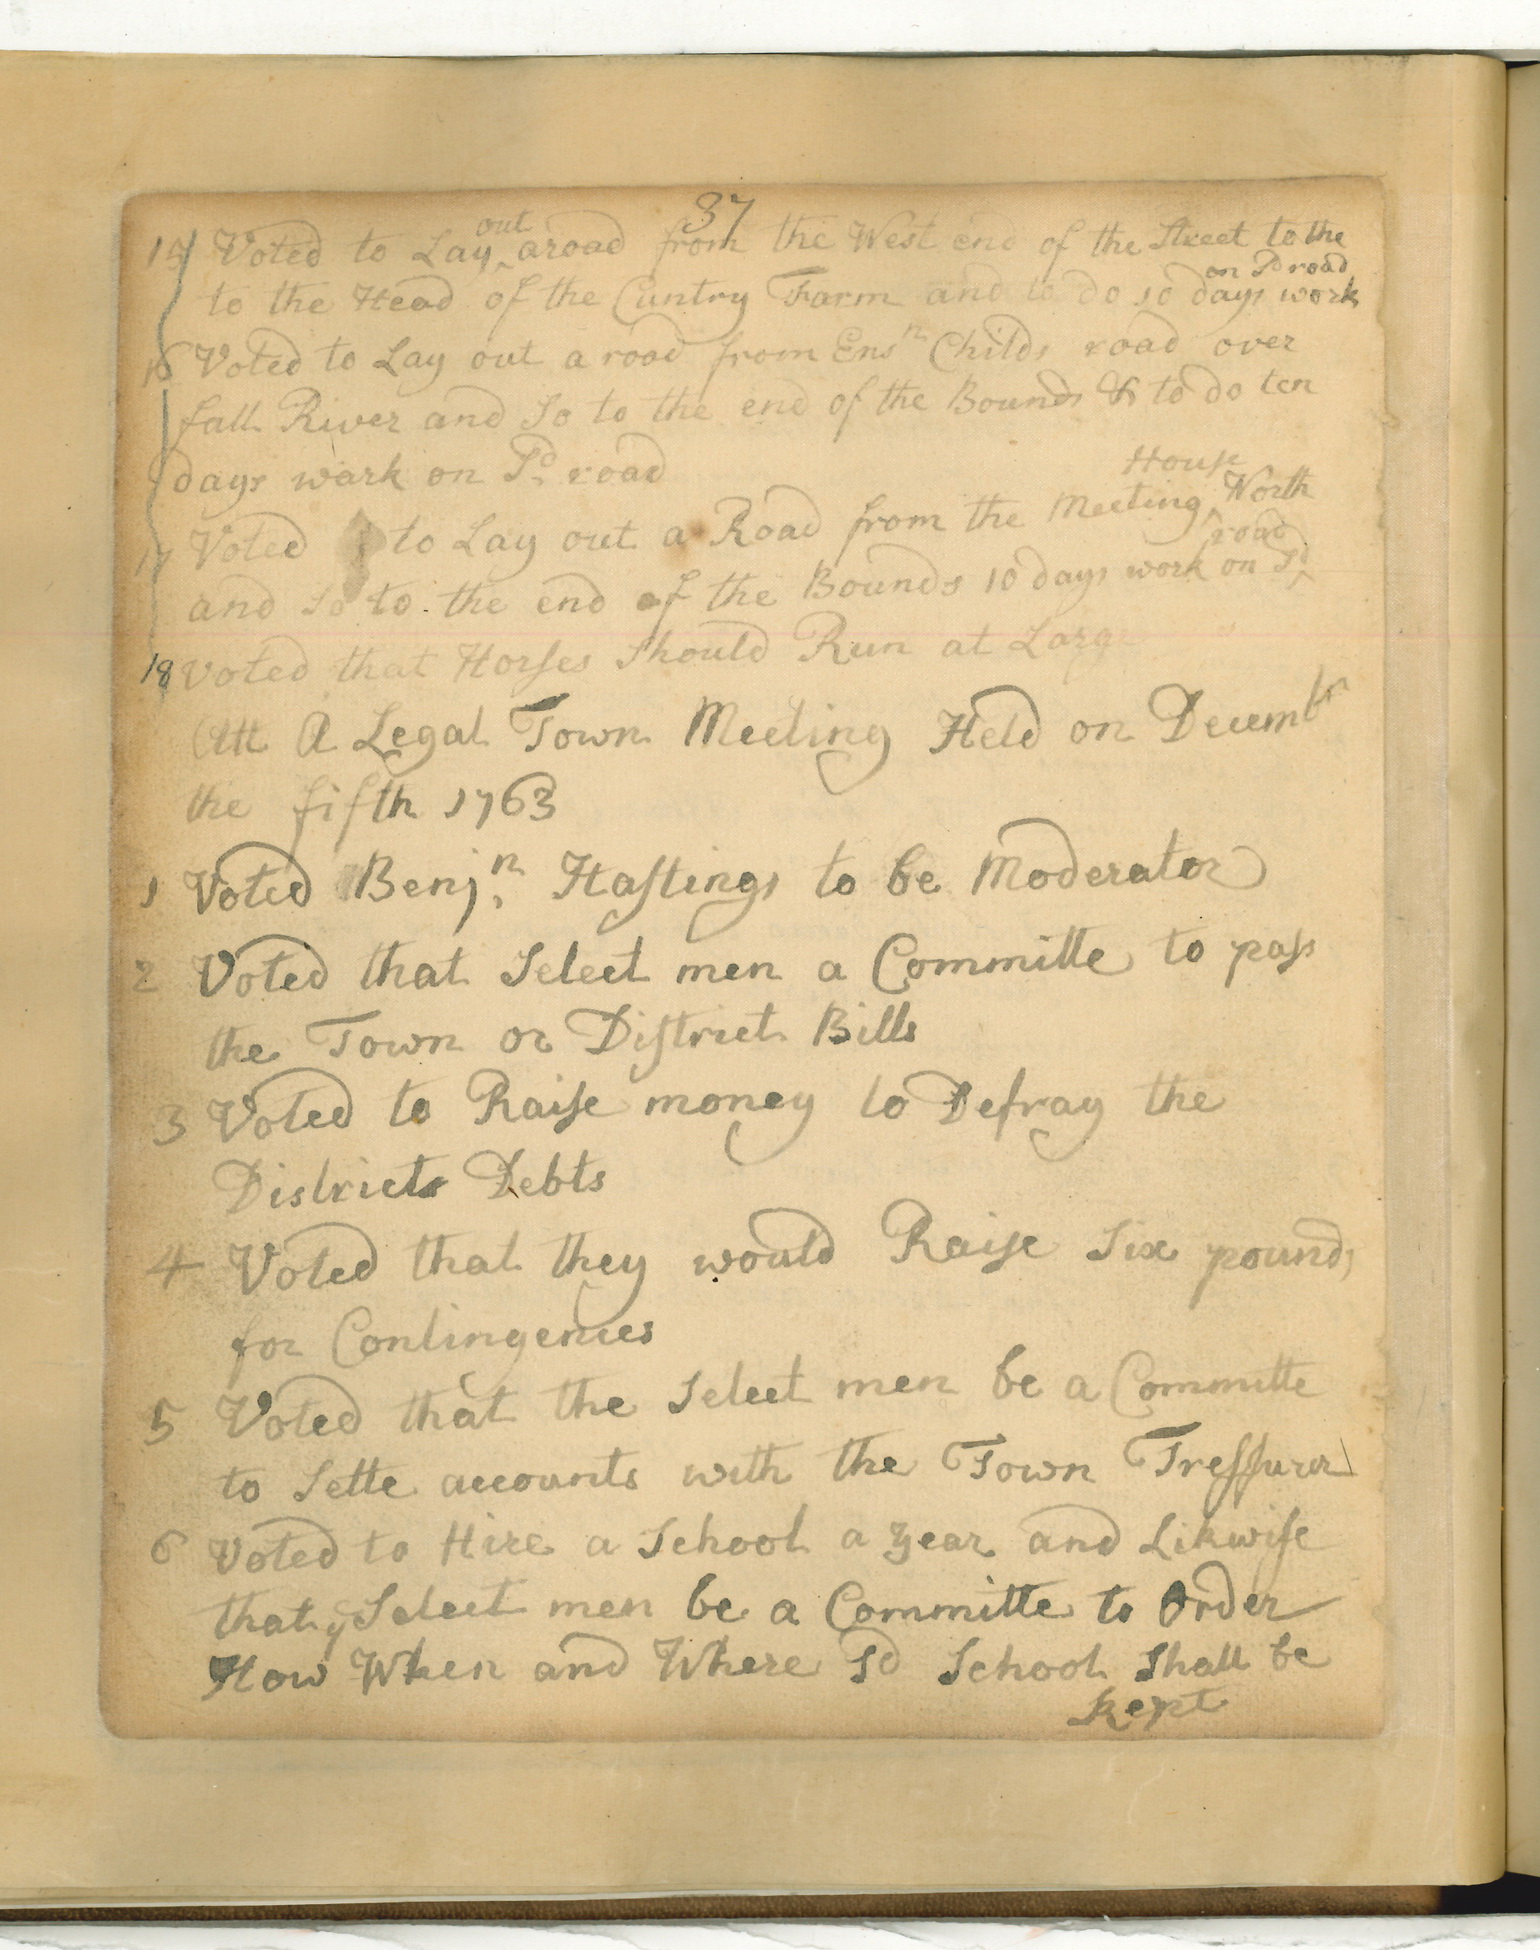 37
15 Voted to Lay out aroad from the West end of the Street to the
to the Head of the Cuntry Farm and to do 10 days work on Sd road
16 Voted to Lay out a road from Ensn Childs road over
fall River and So to the end of the Bounds & to do ten
days wark on Sd road
17 Voted to Lay out a Road from the Meeting House North
and So to the end of the Bounds 10 days work on Sd road
18 Voted that Horses Should Run at Large
Att A Legal Town Meeting Held on Decembr
the fifth 1763
1 Voted Benjn Hastings to be Moderator
2 Voted that Select men a Committe to pass
the Town or District Bills
3 Voted to Raise money to Defray the
Districts Debts
4 Voted that they would Raise Six pounds
for Contingencies
5 Voted that the Select men be a Committe
to Sette accounts with the Town Tressurer
6 Voted to Hire a School a year and Likwise
that ye Select men be a Committe to Order
How When and Where Sd School Shall be
Kept